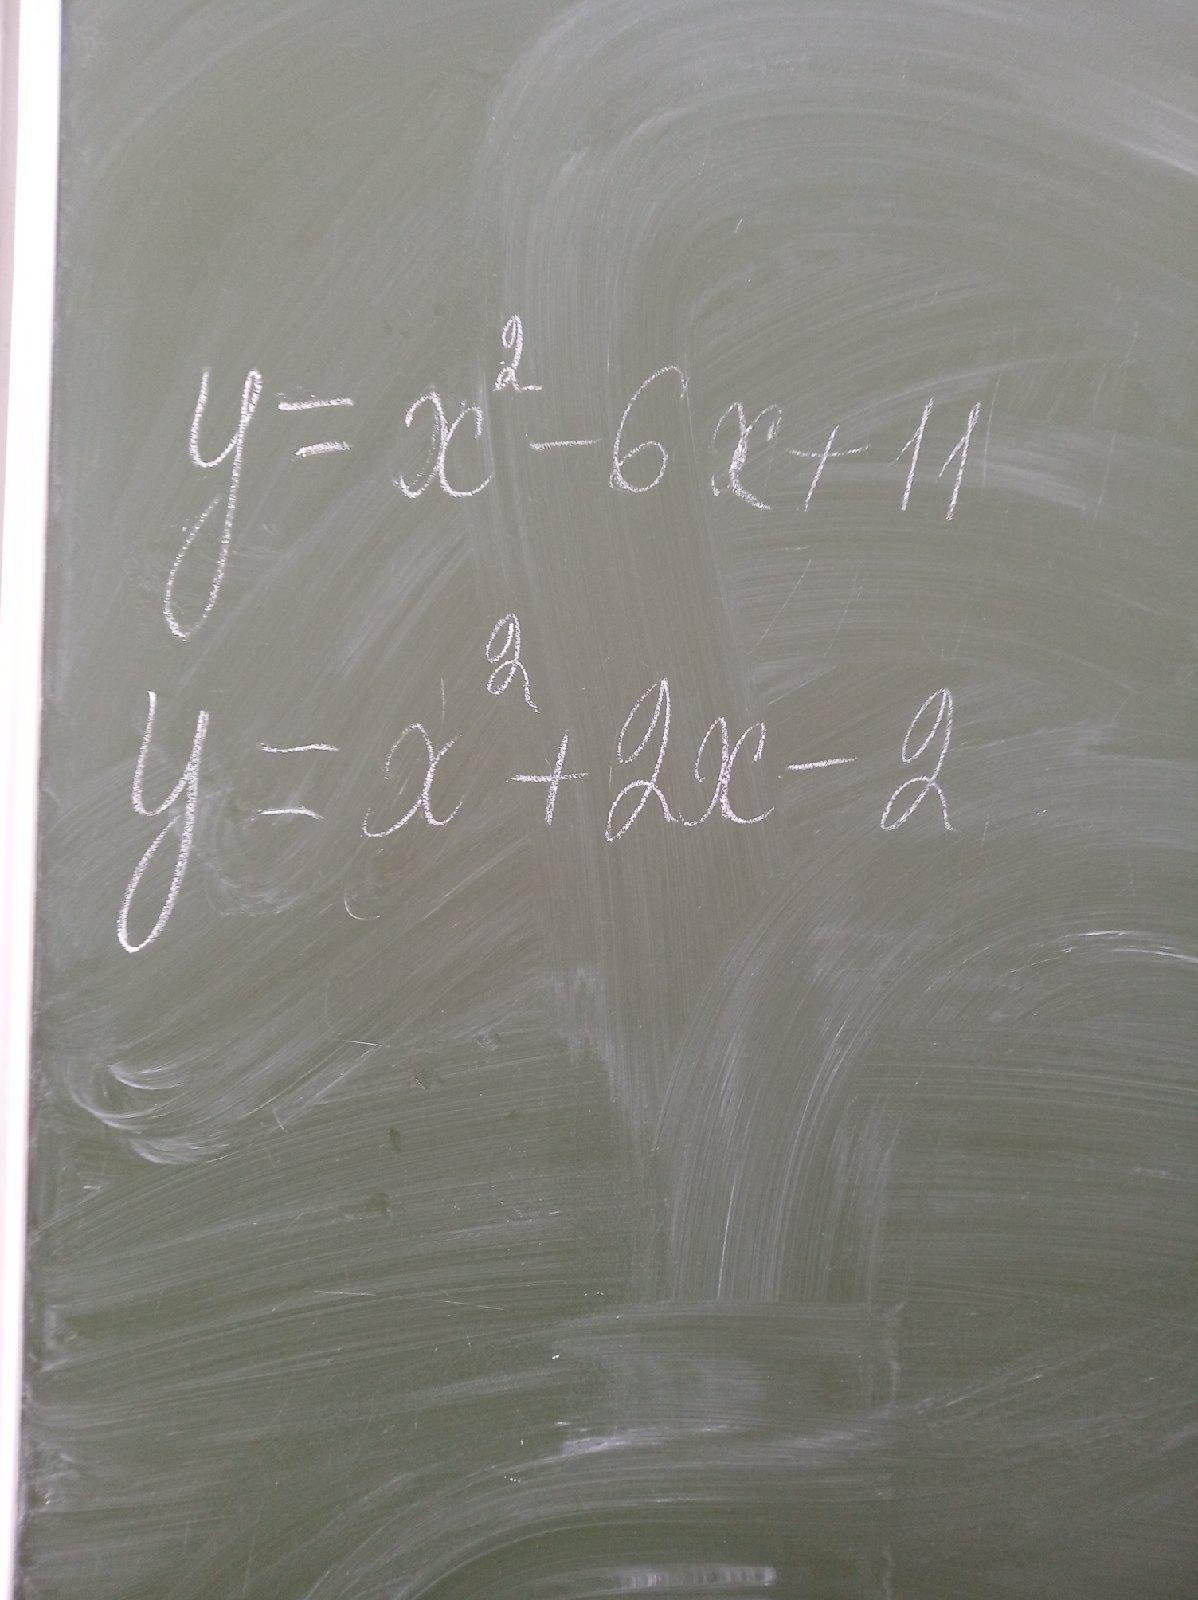 y = x² - 6x + 11
y = x² + 2x - 2